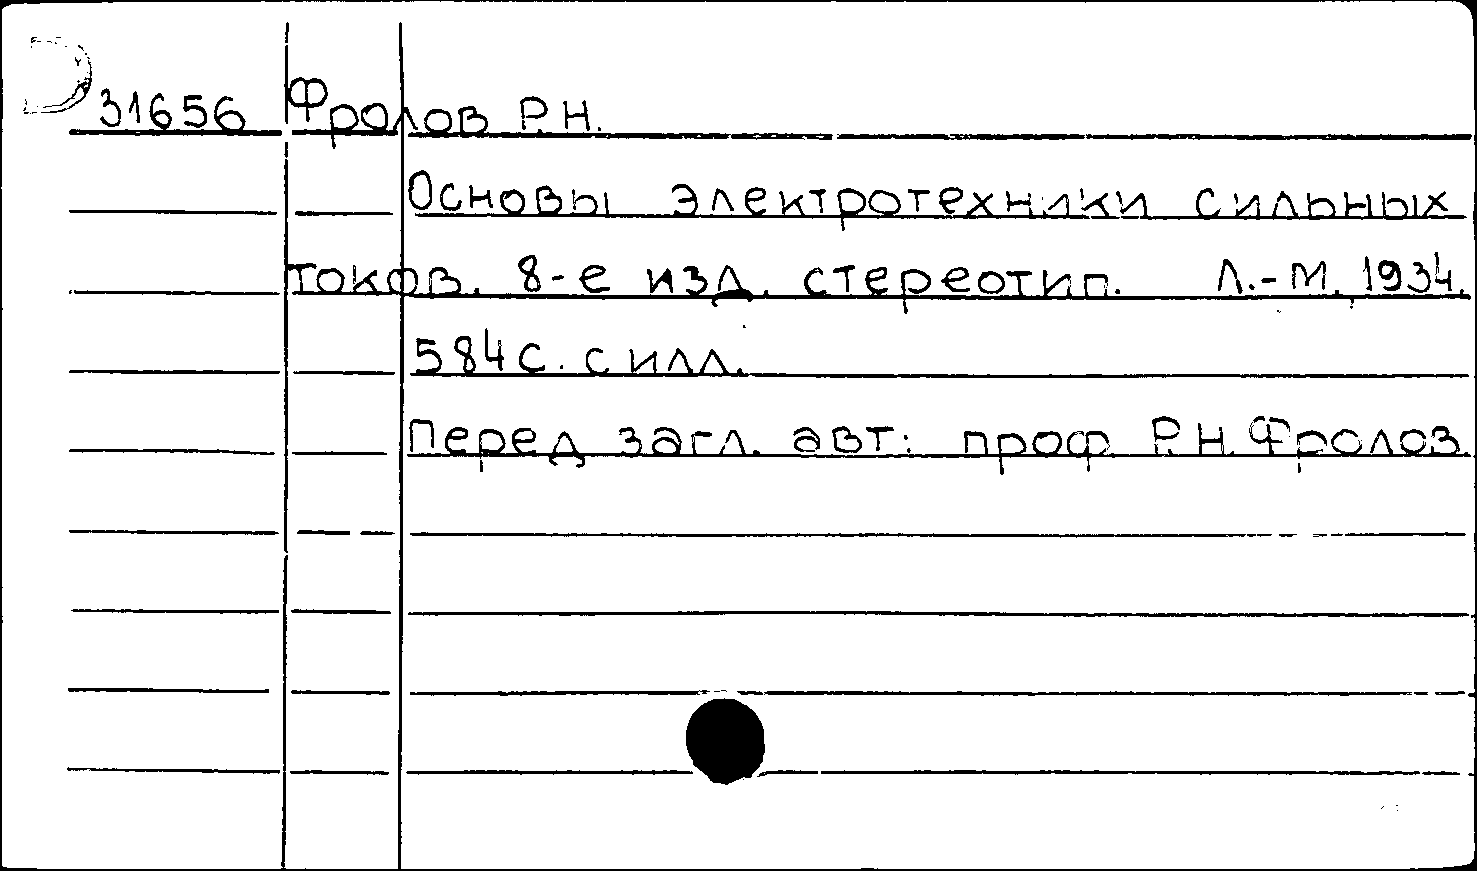 31656 Фролов Р.Н.
Основы электротехники сильных
токов. 8-е изд. стереотип. Л.-М. 1934.
584 с. с илл.
Перед загл. авт: проф. Р.Н. Фролов.